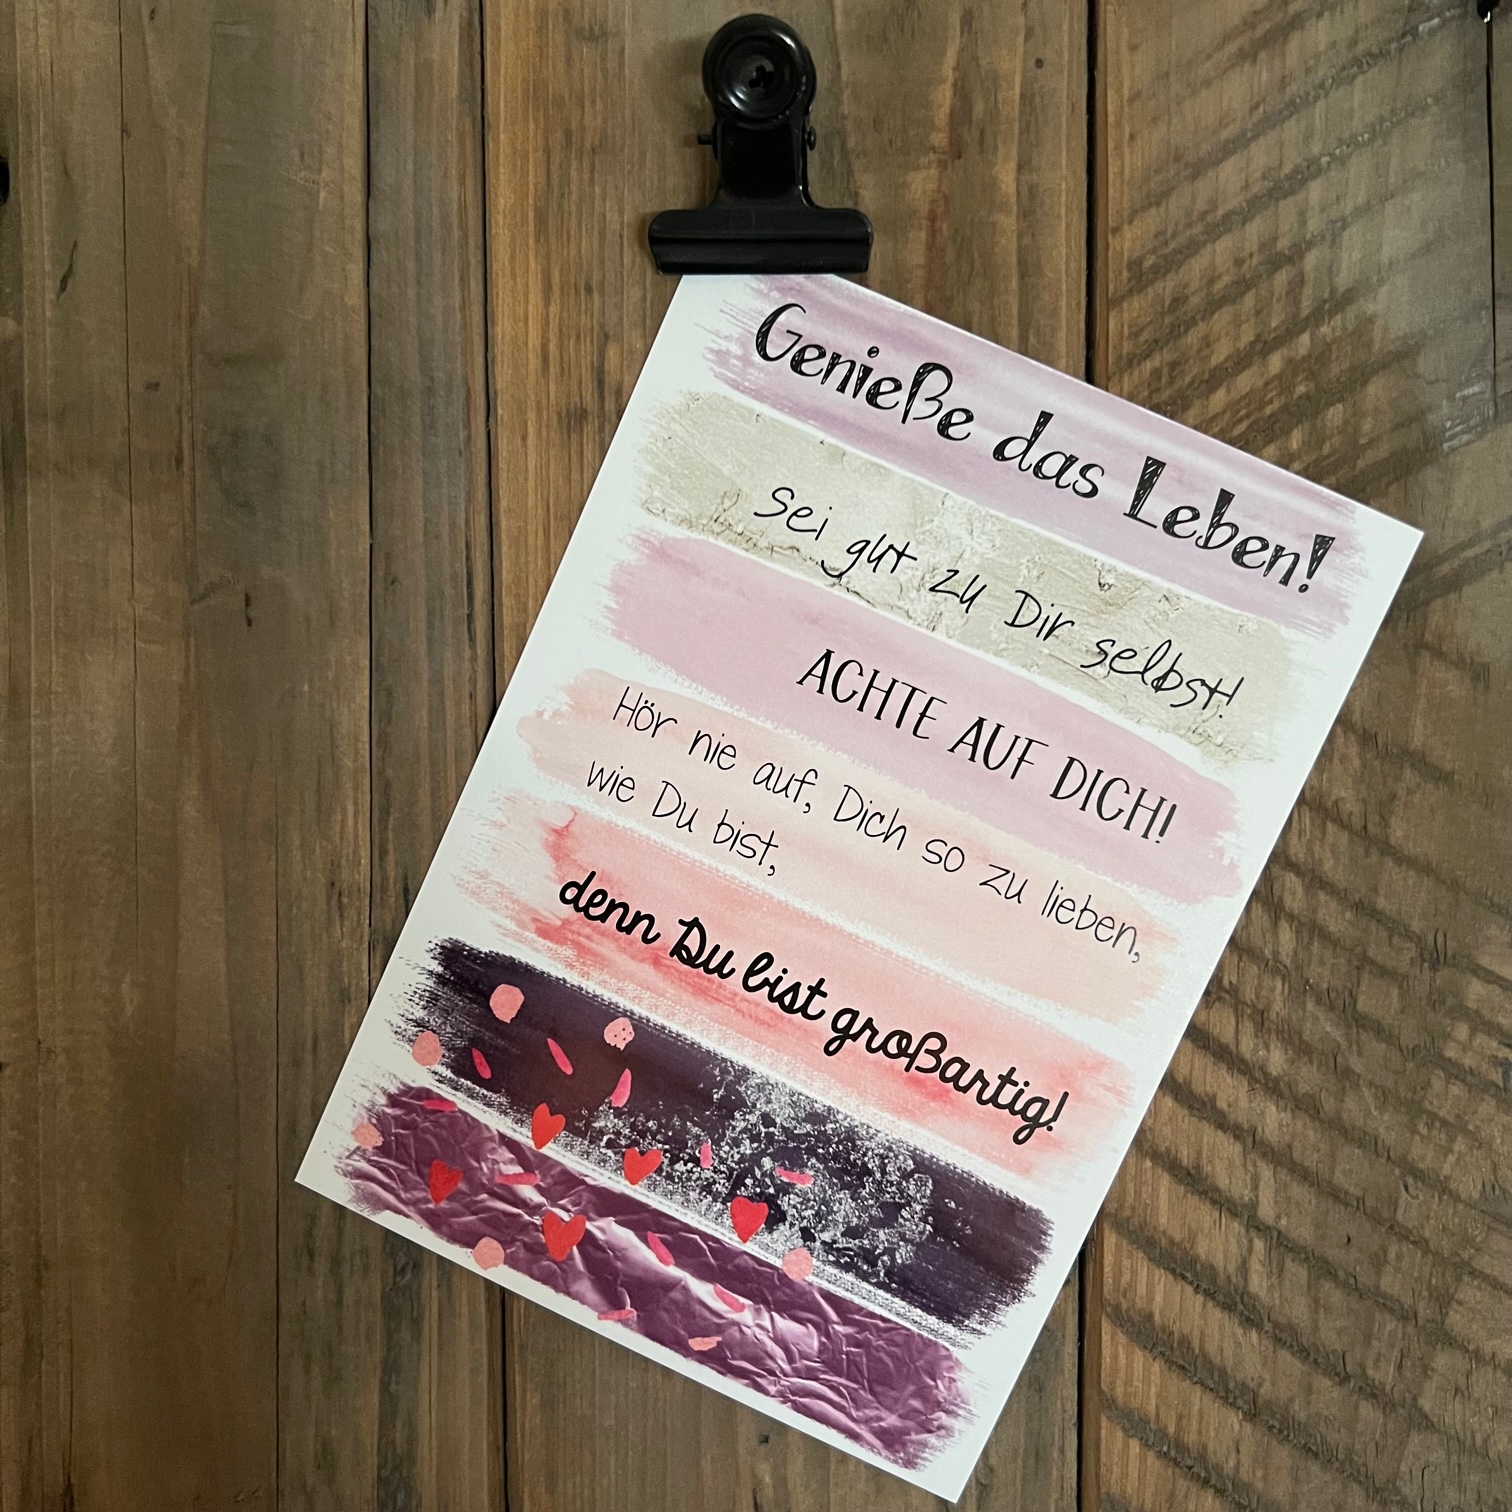 Genieße das Leben!
Sei gut zu Dir selbst!
ACHTE AUF DICH!
Hör nie auf, Dich so zu lieben,
wie Du bist,
denn Du bist großartig!